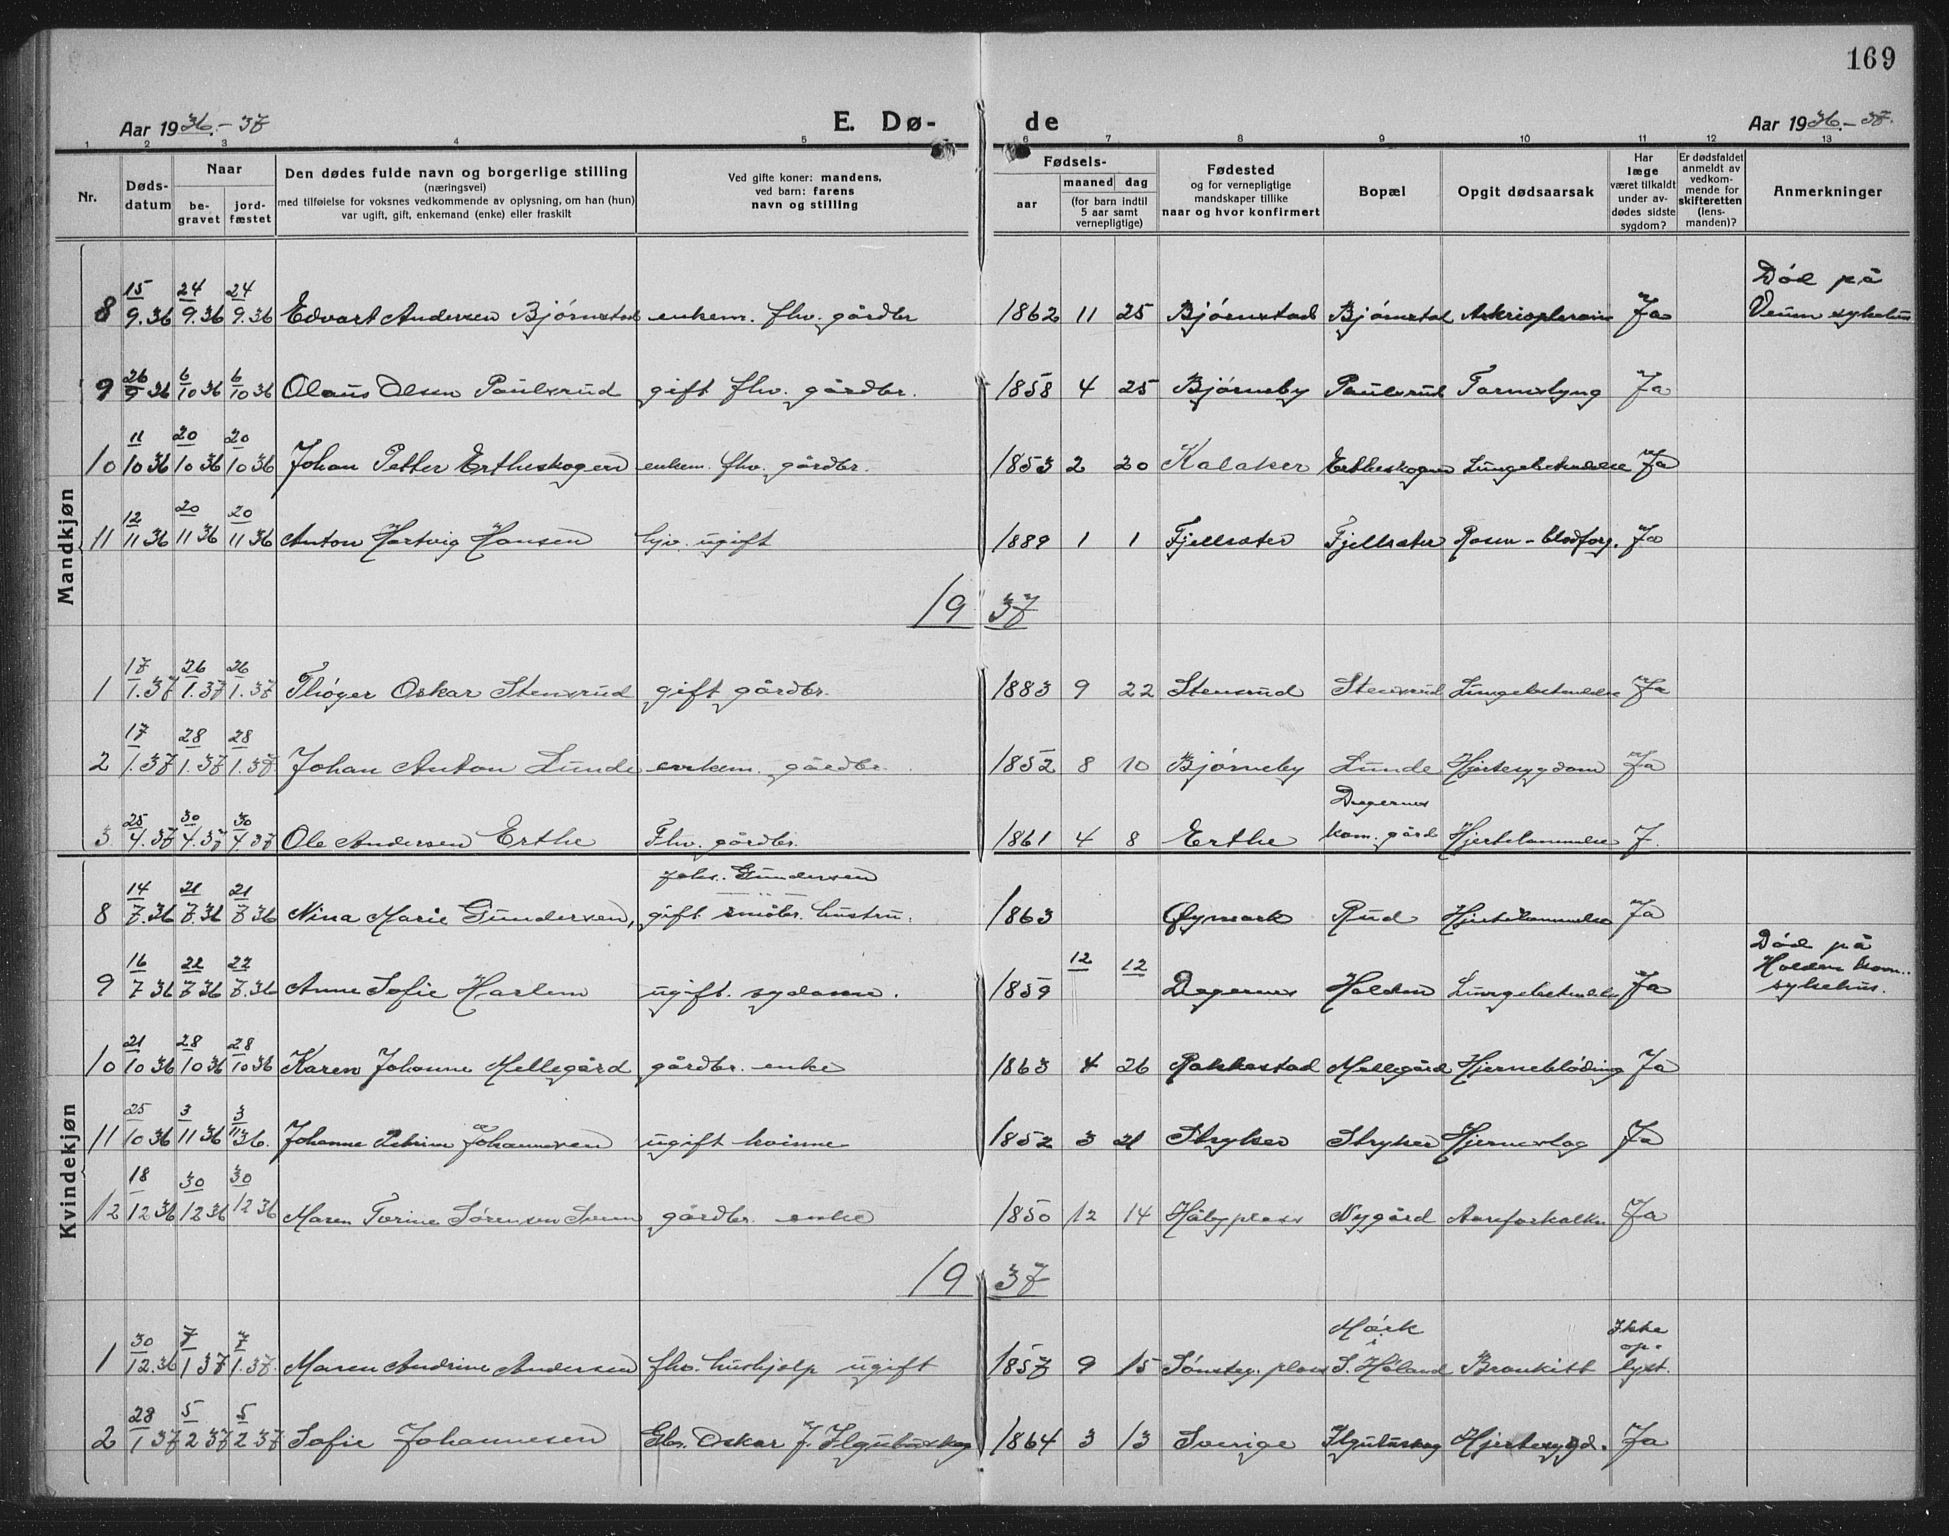 169
Aar 1936.-37 E. Dø- de Aar 1936.-37.
1 2 3 4 5 6 7 8 9 10 11 12 13
Nr. Døds-datum Naar be-gravet jord-fæstet Den dødes fulde navn og borgerlige stilling (næringsvei) med tilføielse for voksnes vedkommende av oplysning, om han (hun) var ugift, gift, enkemand (enke) eller fraskilt Ved gifte koner: mandens, ved barn: farens navn og stilling Fødsels- aar maaned dag (for barn indtil 5 aar samt vernepligtige) Fødested og for vernepligtige mandskaper tillike naar og hvor konfirmert Bopæl Opgit dødsaarsak Har læge været tilkaldt under av-dødes sidste sygdom? Er dødsfaldet anmeldt av vedkom-mende for skifteretten (lens-manden)? Anmerkninger
Mandkjøn
8 15/9.36 24/9.36 24/9.36 Edvart Andersen Bjørnstad enkem. fhv. gårdbr 1862 11 25 Bjørnstad Bjørnstad Ja Död på Veum sykehus
9 26/9 36 6/10 36 6/10 36 Olaus Olsen Paulsrud gift fhv. gårdbr. 1858 4 25 Bjørneby Paulsrud Tarmslyng Ja
10 11/10 36 20/10 36 20/10 36 Johan Petter Ertheskogen enkem. fhv. gårdbr. 1853 2 20 Kalaker Ertheskogen Lungebetendelse Ja
11 12/11 36 20/11 36 20/11 36 Anton Hartvig Hansen hjv. ugift 1889 1 1 Fjellsæter Fjellsæter Rosen - blodforg. Ja
1937
1 17/1.37 26/1.37 26/1.37 Thøger Oskar Stensrud gift gårdbr. 1883 9 22 Stensrud Stensrud Lungebetendelse Ja
2 17/1.37 28/1.37 28/1.37 Johan Anton Lunde enkem. gårdbr. 1852 8 10 Bjørneby Lunde Hjertesygdom Ja
3 25/4.37 30/4.37 30/4 37 Ole Andersen Erthe Fhv. gårdbr. 1861 4 8 Erthe Degernes kom. gård Hjertelammelse J.
Kvindekjøn
8 14/7.36 21/7.36 21/7 36 Nina Marie Gundersen, Johs. Gundersen gift småbr. hustru. 1863 Øymark Rud Hjertelammelse Ja
9 16/7 36 22/7 36 22/7.36 Anne Sofie Harlem ugift. sydame. 1859 12 12 Degernes Halden Lungebetendelse Ja Död på Halden kom. sykehus.
10 21/10 36 28/10 36 28/10 36 Karen Johanne Mellegård gårdbr. enke 1863 4 26 Rakkestad Mellegård Hjerneblødning Ja
11 25/10 36 3/11 36 3/11 36. Johanne Petrine Johannesen ugift kvinne 1852 3 21 Stryker Stryker Hjerneslag Ja
12 18/12 36 30/12 36 30/12 36 Maren Torine Sørensen gårdbr. enke 1850 12 14 Håbyplass Nygård Aareforkalkn Ja
1937
1 30/12.36 7/1 37 7/1.37. Maren Andrine Andersen fhv. hushjelp ugift 1857 9 15 Sønsteg. plass Mørk i S. Høland Bronkitt Ikke op-lyst.
2 28/1 37 5/2 37 5/2 37 Sofie Johannesen Gbr. Oskar J. 1864 3 13 Sverige Hjertesygd. Ja